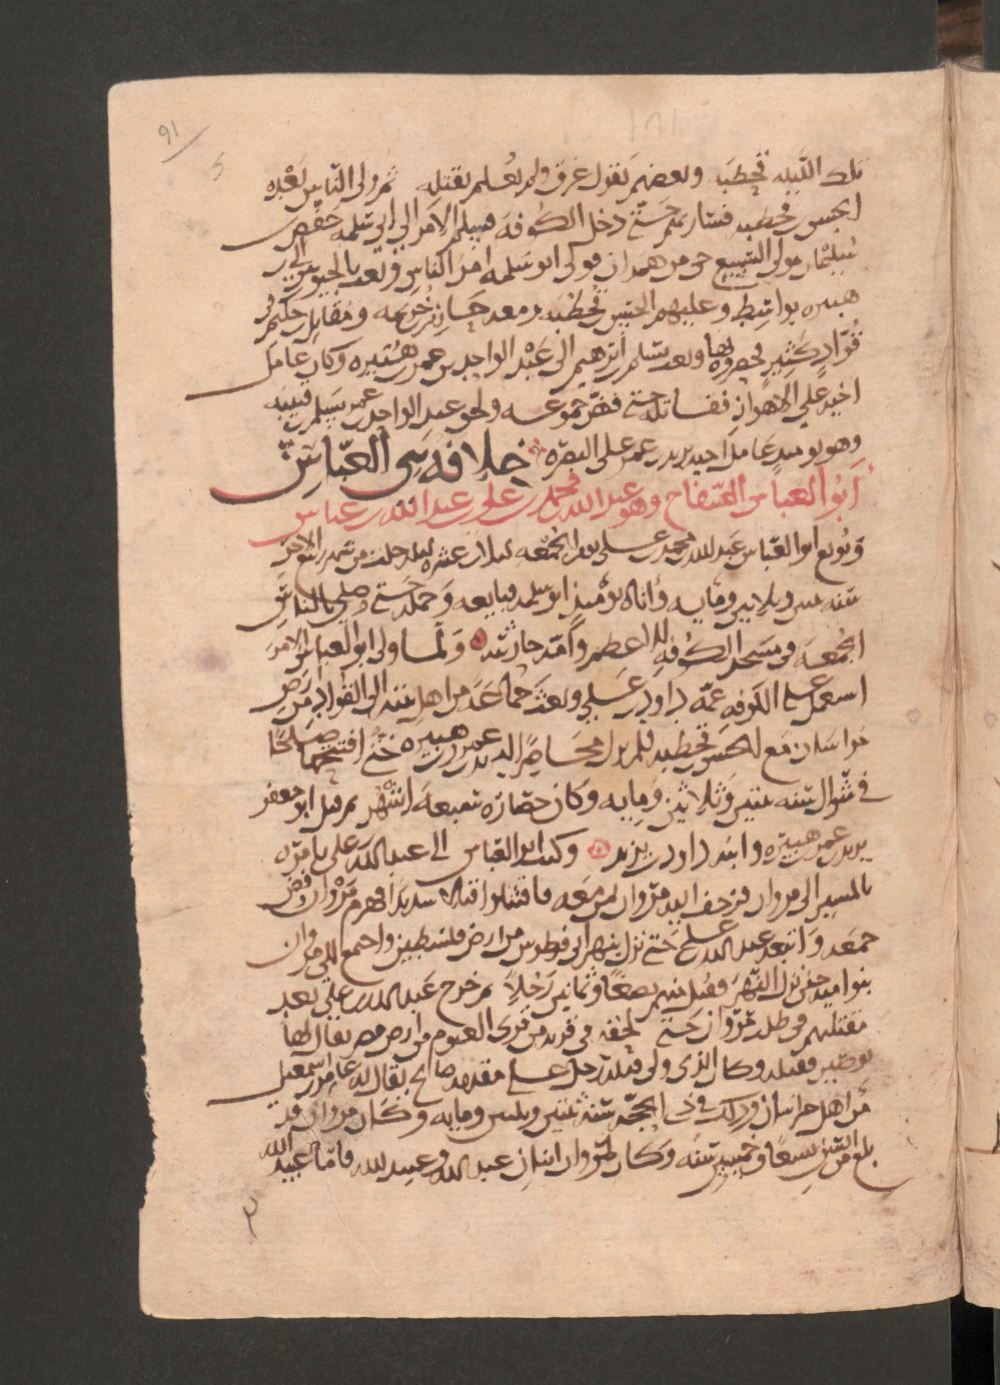 91
تلك الليله قحطبه وبعضهم يقول غرق ولم يعلم بقتله ثم ولى الناس بعده
الحسن بن قحطبه فسار بهم حتى دخل الكوفه فسلم الامر الى ابى سلمه حفص بن
سليمان مولى السبيع حى من همدان فولى ابو سلمه امر الناس وبعث بالجيوش الى بن
هبيره بواسط وعليهم الحسن بن قحطبه ومعه خازم بن خزيمه ومقاتل بن حكيم فى
قواد كثير فحصروه بها وبعث بسلم بن ابرهيم الى عبد الواحد بن عمر بن هبيره وكان عامل
اخيه على الاهواز فقاتله حتى فض جموعه ولحق عبد الواحد بن عمر بسلم بن قتيبه
وهو يومئذ عامل اخيه يزيد بن عمر على البصره خلافة بنى العباس
ابو العباس السفاح وهو عبد الله بن محمد بن على بن عبد الله بن عباس
وبويع ابو العباس عبد الله بن محمد بن على يوم الجمعه لثلاث عشره ليله خلت من شهر ربيع الاخر
سنه ثنتين وثلاثين ومايه واتاه يومئذ ابو سلمه فبايعه وحمله حتى صلى بالناس
الجمعه فى مسجد الكوفه الاعظم وامه حارثيه ولما ولى ابو العباس الامر
استعمل على الكوفه عمه داود بن على وبعث جماعه من اهل بيته الى القواد من ارض
خراسان مع الحسن بن قحطبه فلم يزل محاصرا ليزيد بن عمر بن هبيره حتى افتتحها صلحا
فى شوال سنه ثنتين وثلاثين ومايه وكان حصاره تسعه اشهر ثم قتل ابو جعفر
يزيد بن عمر بن هبيره وابنه داود بن يزيد وكتب ابو العباس الى عبد الله بن على يامره
بالمسير الى مروان فزحف اليه مروان بمن معه فاقتتلوا قتالا شديدا فهزم مروان وفض
جمعه واتبعه عبد الله بن على حتى نزل بنهر ابى فطرس من ارض فلسطين واجتمع الى مروان
بنو اميه حين نزل النهر فقتل منهم بضعا وثمانين رجلا ثم خرج عبد الله بن على بعد
مقتلهم فى طلب مروان حتى لحقه فى قريه من قرى الفيوم من ارض مصر يقال لها
بوصير فقتله وكان الذى ولى قتله رجل على مقدمه صالح يقال له عامر بن اسمعيل
من اهل خراسان وذلك فى ذى الحجه سنه ثنتين وثلثين ومايه وكان مروان قد
بلغ من السن تسعا وخمسين سنه وكان لمروان ابنان عبد الله وعبيد الله فاما عبيد الله